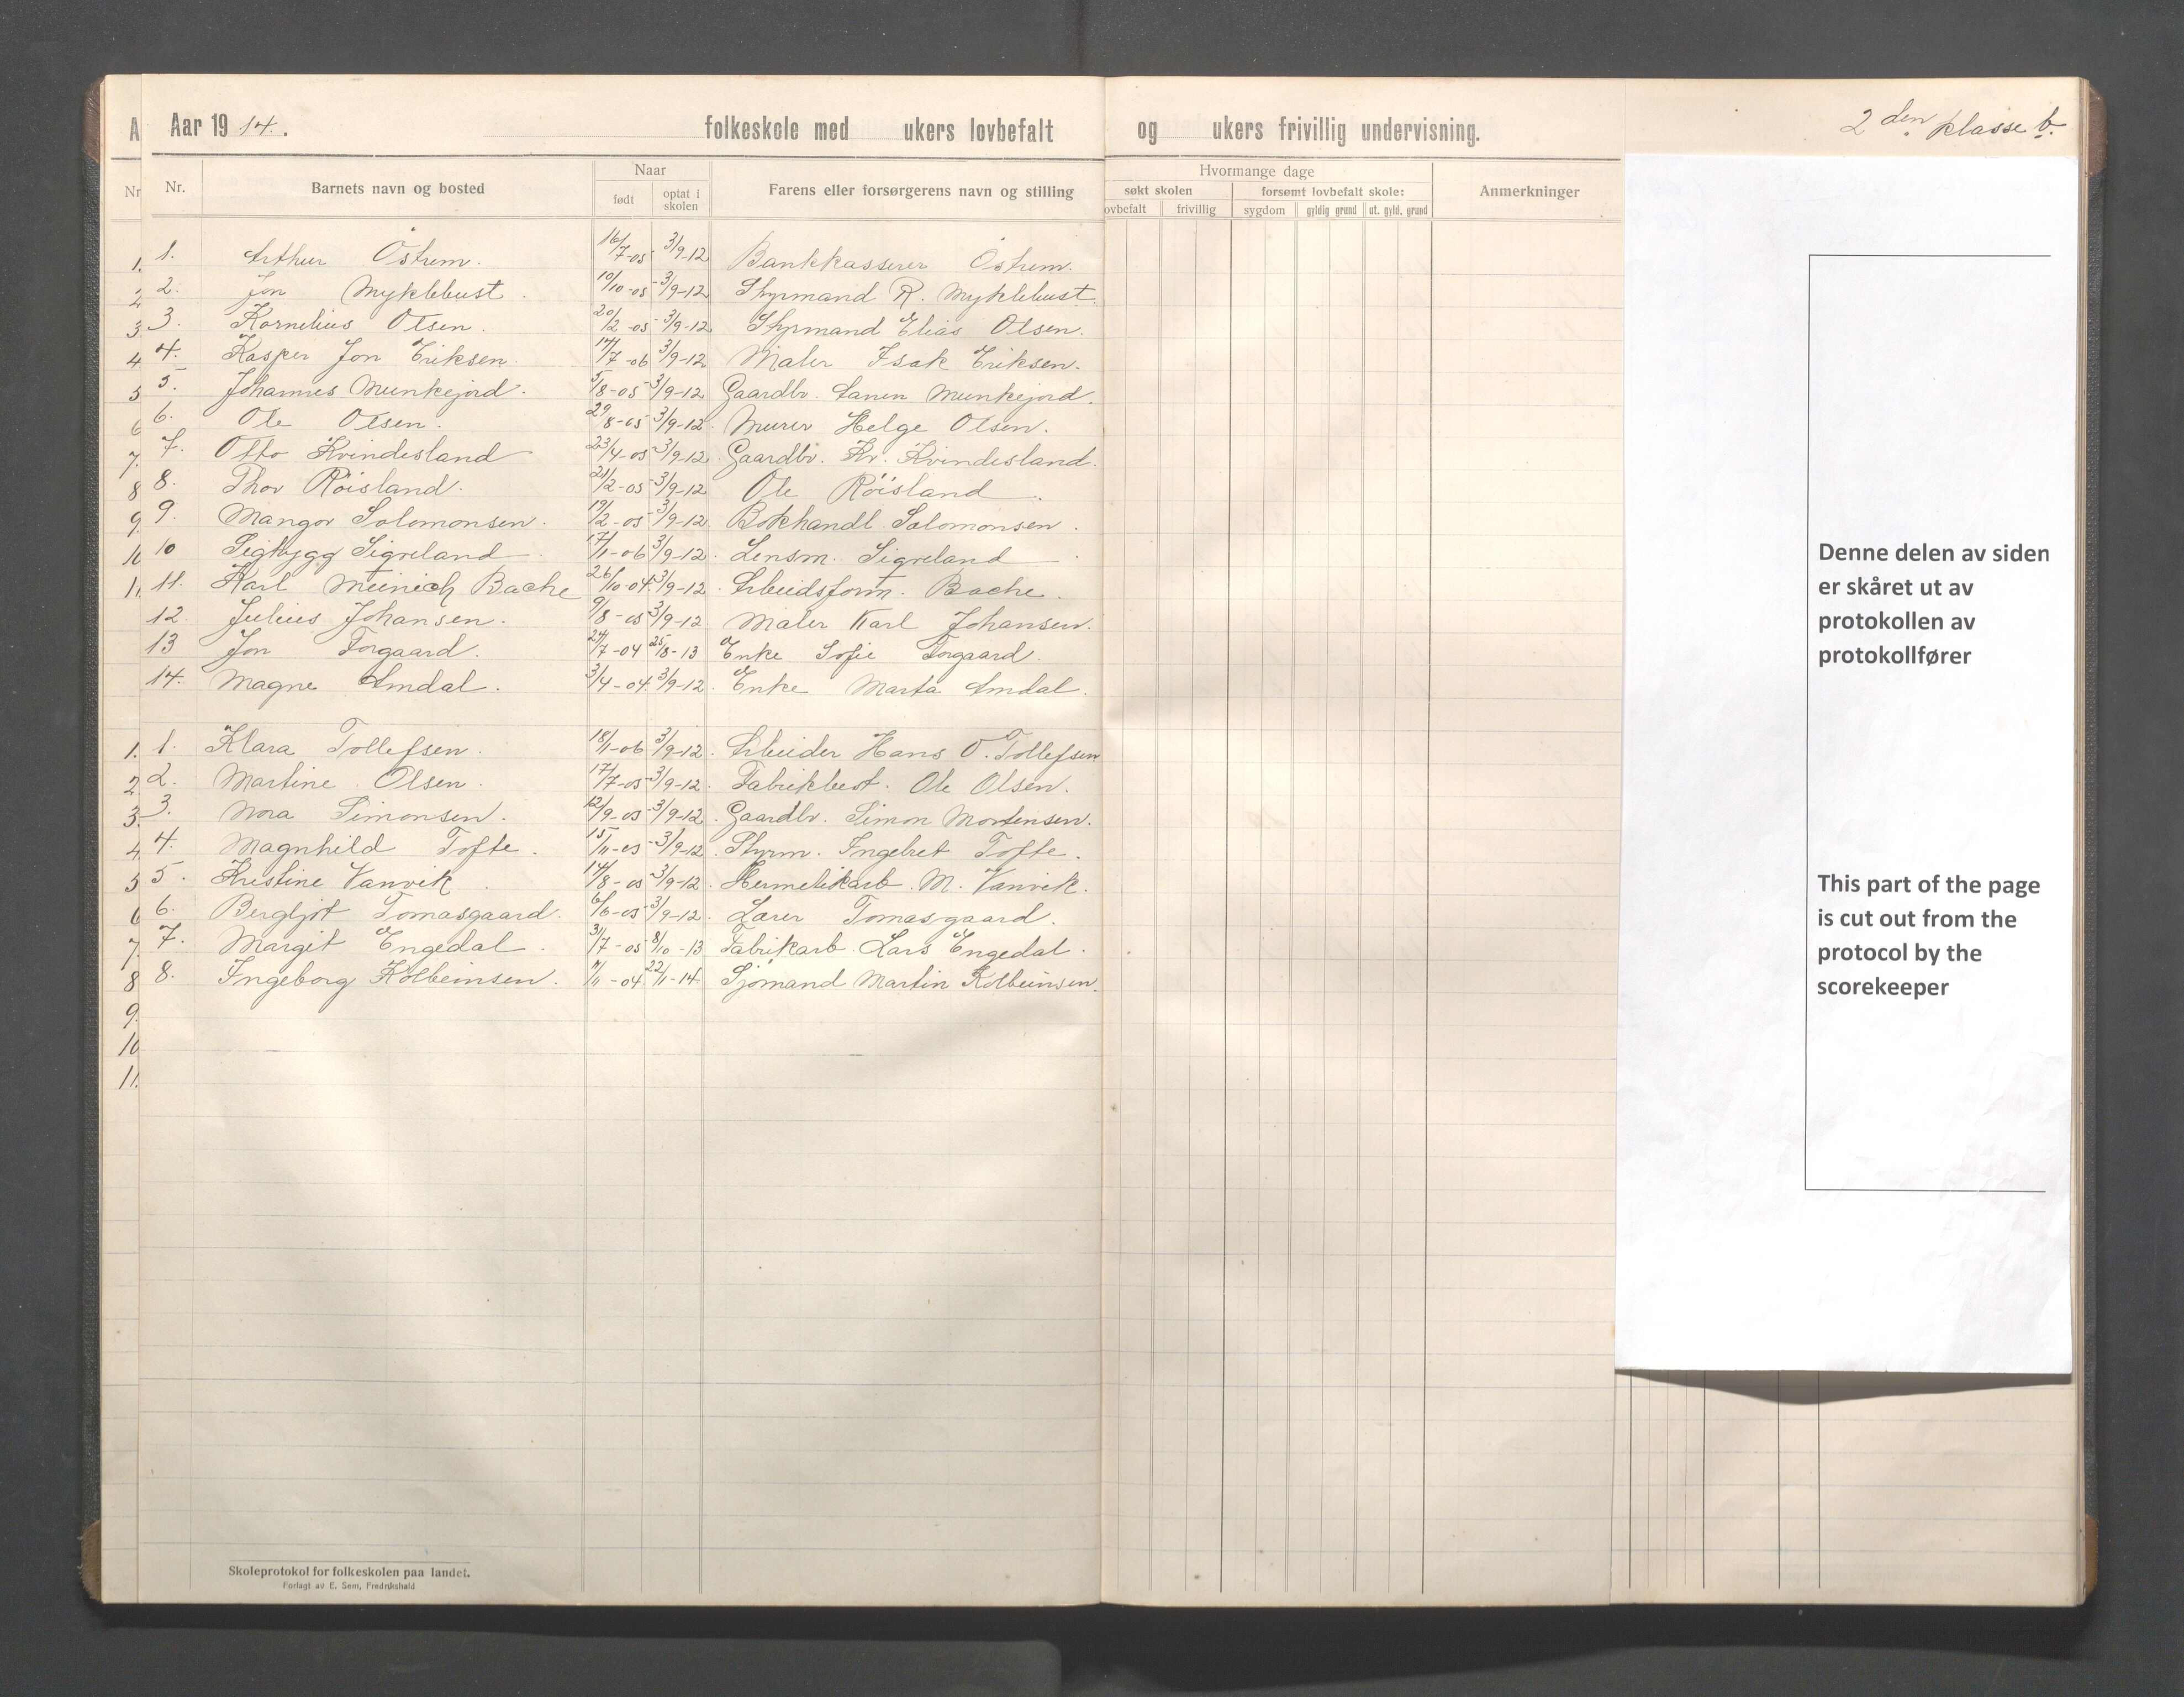 Aar 1914. folkeskole med ukers lovbefalt og ukers frivillig undervisning.
2den klasse b.
Nr. Barnets navn og bosted Naar født optat i skolen Farens eller forsørgerens navn og stilling Hvormange dage søkt skolen lovbefalt frivillig forsømt lovbefalt skole: sygdom gyldig grund ut. gyld. grund Anmerkninger
1. Arthur Östrem. 16/7-05 3/9-12 Bankkasserer Östrem.
2. Jon Myklebust. 10/10-05 3/9-12 Styrmand R. Myklebust.
3. Kornelius Olsen. 20/2-05 3/9-12 Styrmand Elias Olsen.
4. Kasper Jon Eriksen. 14/7-06 3/9-12 Maler Isak Eriksen.
5. Johannes Munkejord. 5/8-05 3/9-12 Gaardbr. Aanen Munkejord.
6. Ole Olsen. 29/8-05 3/9-12. Murer Helge Olsen.
7. Otto Kvindesland 23/4-05 3/9-12. Gaardbr. Kr. Kvindesland.
8. Thor Röisland. 21/2-05 3/9-12 Ole Röisland.
9. Mangor Solomonsen. 19/2-05 3/9-12 Bokhandl. Salomonsen.
10 Sigtrygg Sigveland. 17/1-06 3/9-12. Lensm. Sigveland.
11. Karl Meinich Bache 26/10-04 3/9-12. Arbeidsform. Bache.
12. Julius Johansen. 9/8-05 3/9-12 Maler Karl Johansen.
13 Jon Torgaard. 24/7-04 25/8-13 Enke Sofie Torgaard.
14. Magne Amdal. 3/4-04. 3/9-12. Enke Marta Amdal.
1. Klara Tollefsen. 18/1-06 3/9-12. Arbeider Hans O. Tollefsen
2. Martine Olsen. 17/7-05 3/9-12. Fabrikbest. Ole Olsen.
3. Nora Simonsen. 12/9-05 3/9-12. Gaardbr. Simon Mortensen.
4. Magnhild Tofte. 15/11-05 3/9-12. Styrm. Ingebret Tofte.
5. Kristine Vanvik. 14/8-05 3/9-12. Hermetikarb. M. Vanvik.
6. Bergljot Tomasgaard. 6/6-05 3/9-12. Lærer Tomasgaard.
7. Margit Engedal. 31/7-05 8/10-13 Fabrikarb. Lars Engedal.
8. Ingeborg Kolbeinsen. 11/11-04 22/1-14 Sjömand Martin Kolbeinsen.
9.
10
11.
Skoleprotokol for folkeskolen paa landet.
Forlagt av E. Sem, Fredrikshald
Denne delen av siden
er skåret ut av
protokollen av
protokollfører
This part of the page
is cut out from the
protocol by the
scorekeeper